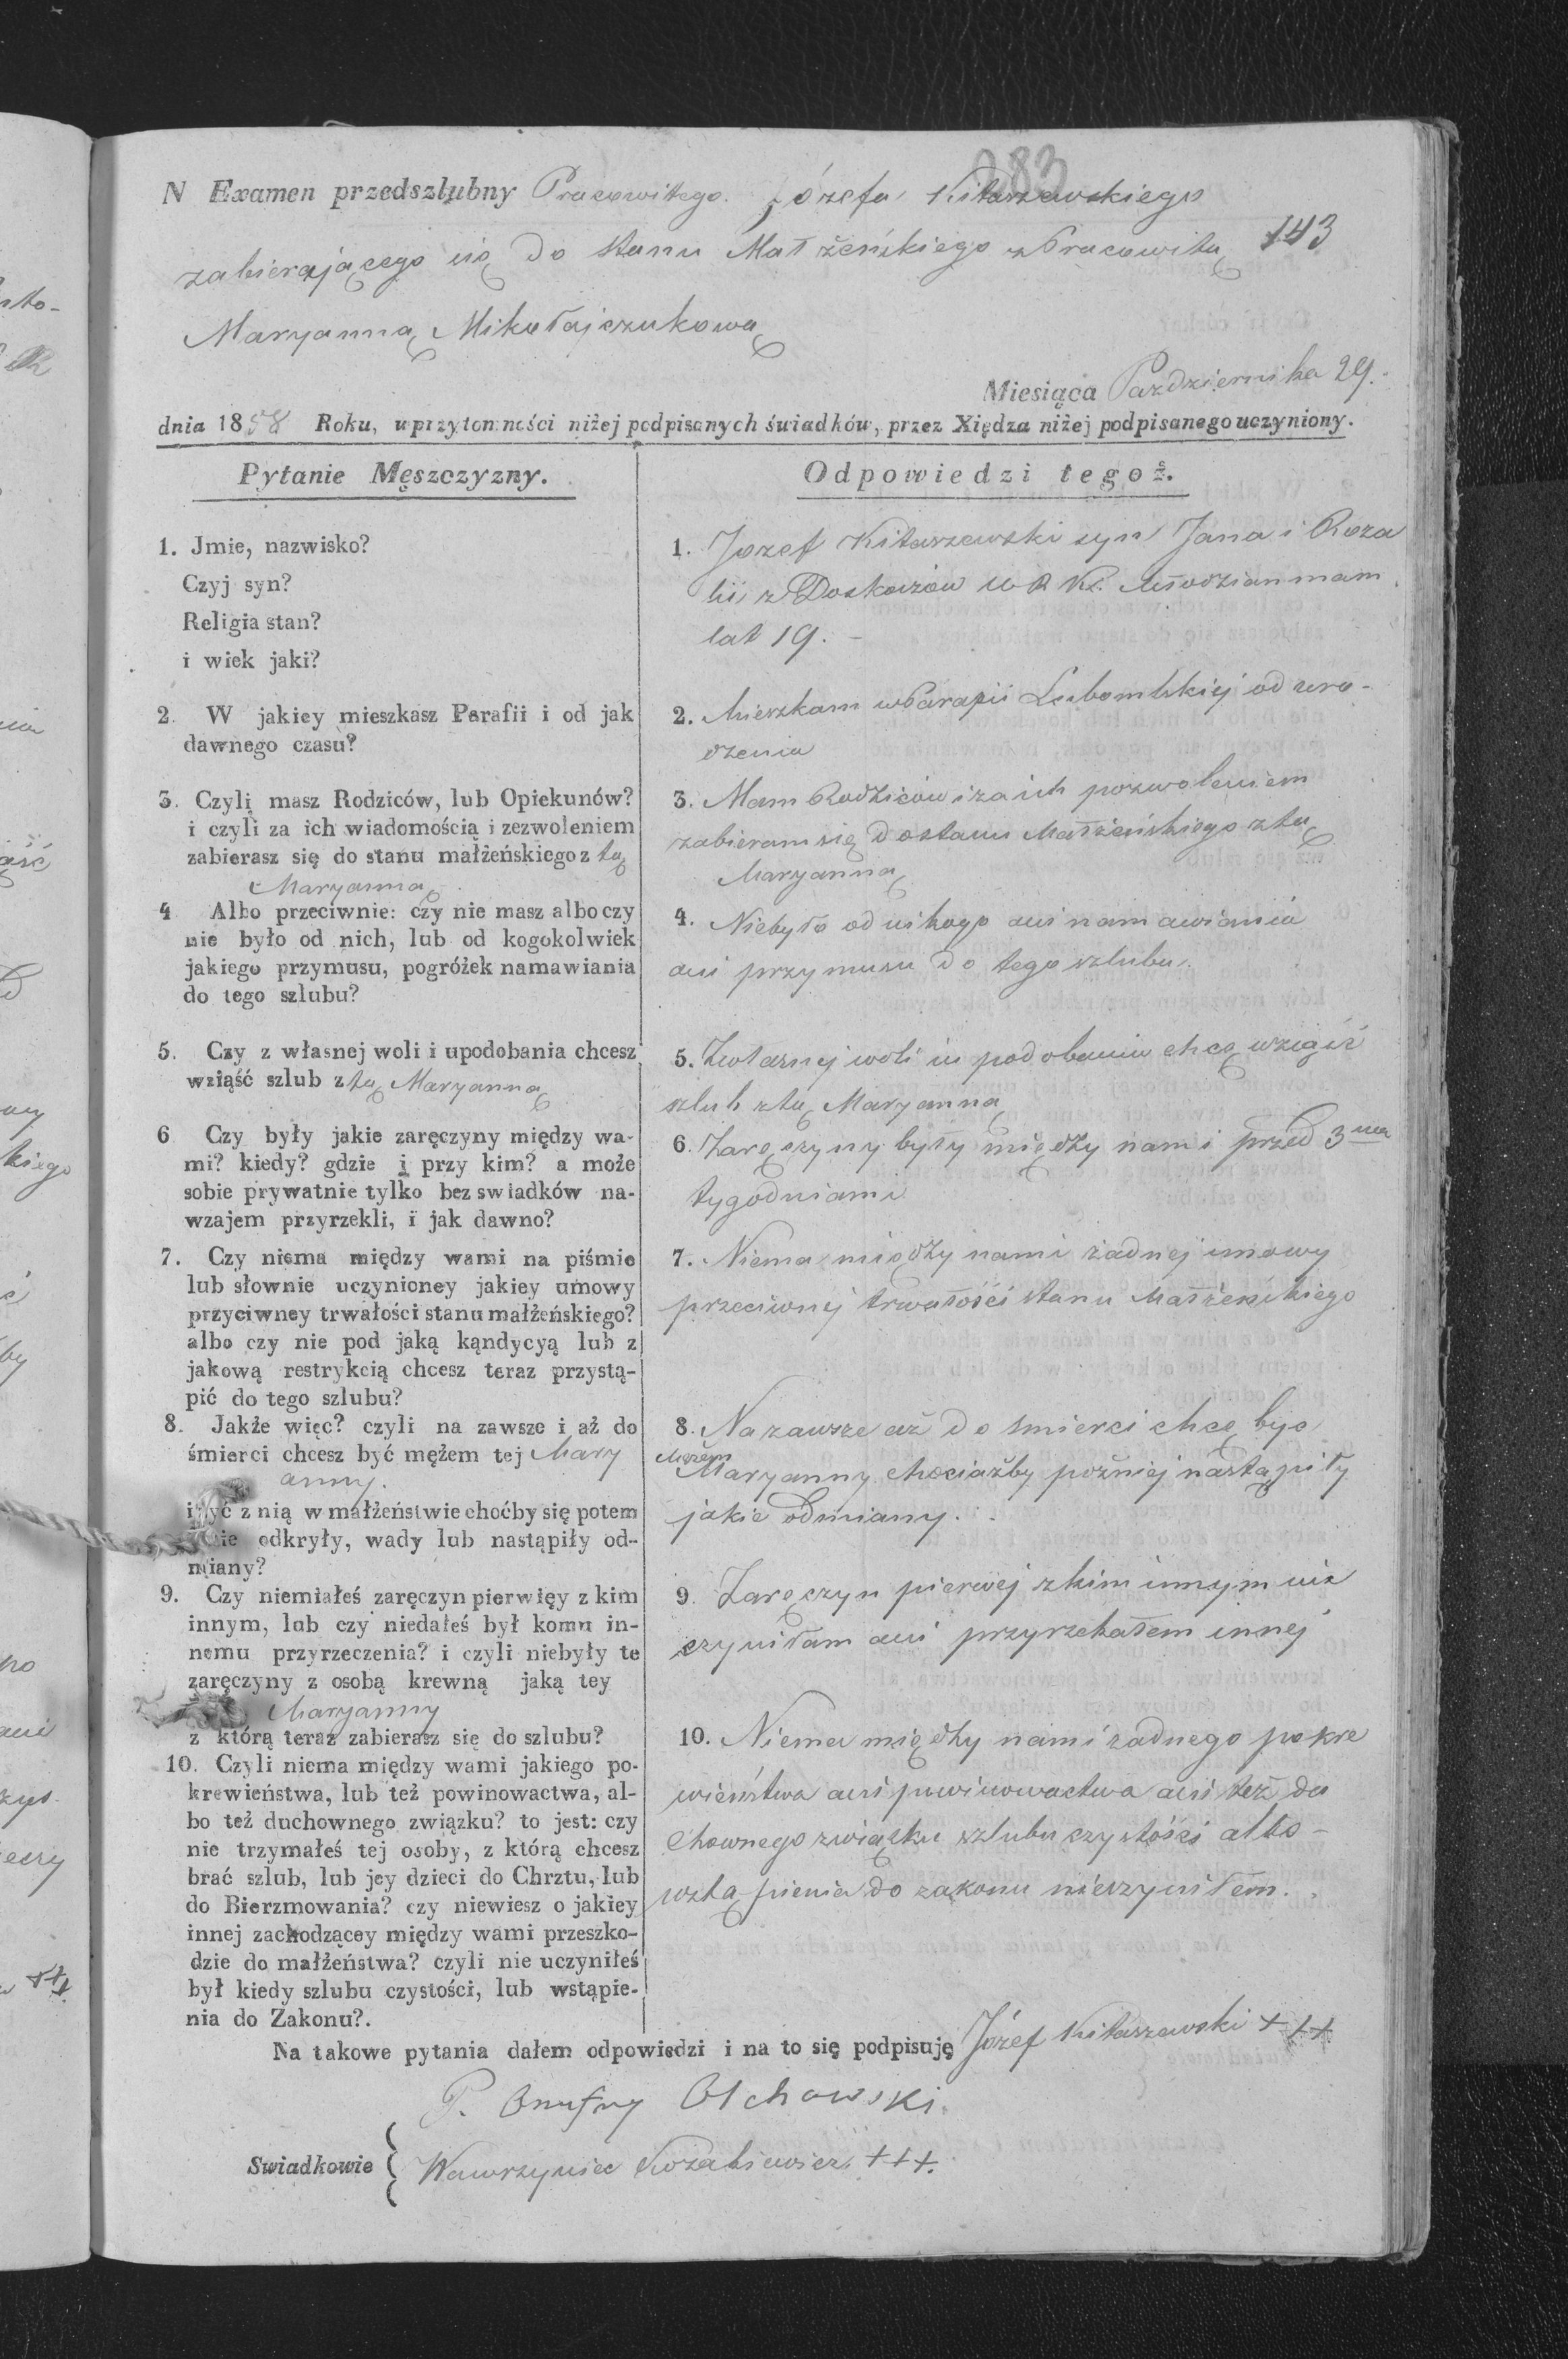 283
N Examen przedszlubny Pracowitego Józefa Kitaszewskiego
143
zabierającego się do stanu Małżeńskiego z Pracowitą
Maryanną Mikołajczukową
Miesiąca Października 29.
dnia 1858 Roku, w przytomności niżej podpisanych świadków, przez Xiędza niżej podpisanego uczyniony.
Pytanie Męszczyzny.
1. Jmie, nazwisko?
Czyj syn?
Religia stan?
i wiek jaki?
2. W jakiey mieszkasz Parafii i od jak
dawnego czasu?
3. Czyli masz Rodziców, lub Opiekunów?
i czyli za ich wiadomością i zezwoleniem
zabierasz się do stanu małżeńskiego z tą
Maryanną
4 Albo przeciwnie: czy nie masz albo czy
nie było od nich, lub od kogokolwiek
jakiego przymusu, pogróżek namawiania
do tego szlubu?
5. Czy z własnej woli i upodobania chcesz
wziąść szlub z tą Maryanną
6 Czy były jakie zaręczyny między wa-
mi? kiedy? gdzie i przy kim? a może
sobie prywatnie tylko bez swiadków na-
wzajem przyrzekli, i jak dawno?
7. Czy niema między wami na piśmie
lub słownie uczynioney jakiey umowy
przyciwney trwałości stanu małżeńskiego?
albo czy nie pod jaką kąndycyą lub z
jakową restrykcią chcesz teraz przystą-
pić do tego szlubu?
8. Jakże więc? czyli na zawsze i aż do
śmierci chcesz być mężem tej Mary
anny.
i żyć z nią w małżeństwie choćby się potem
odkryły, wady lub nastąpiły od-
miany?
9. Czy niemiałeś zaręczyn pierwięy z kim
innym, lub czy niedałeś był komu in-
nemu przyrzeczenia? i czyli niebyły te
zaręczyny z osobą krewną jaką tey
Maryanny
z którą teraz zabierasz się do szlubu?
10. Czyli niema między wami jakiego po-
krewieństwa, lub też powinowactwa, al-
bo też duchownego związku? to jest: czy
nie trzymałeś tej osoby, z którą chcesz
brać szlub, lub jey dzieci do Chrztu, lub
do Bierzmowania? czy niewiesz o jakiey
innej zachodzącey między wami przeszko-
dzie do małżeństwa? czyli nie uczyniłeś
był kiedy szlubu czystości, lub wstąpie-
nia do Zakonu?.
Odpowiedzi tegoż.
1. Jozef Kitaszewski syn Jana i Roza
lii z Doskoczów W R Kt. Młodzian mam
lat 19. -
2. Mieszkam w Parafii Lubomlskiej od uro-
dzenia
3. Mam Rodziców i za ich pozwoleniem
zabieram się do stanu Małżeńskiego z tą
Maryanną
4. Niebyło od nikogo ani namawiania
ani przymusu do tego szlubu.
5. Zwłasnej woli i u podobania chcę wziąść
szlub z tą Maryanną
6. Zaręczyny były między nami przed 3ma
tygodniami
7. Niema między nami żadnej umowy
przeciwnej trwałości stanu Małżeńskiego
8. Na zawsze aż do smierci chcę być
Mężem
Maryanny chociażby poźniej nastąpiły
jakie odmiany.
9. Zaręczyn pierwej z kim innym nie
czyniłam ani przyrzekałem innej
10. Niema między nami żadnego pokre
wieństwa ani powinowactwa ani też du
chownego związku szlubu czystości albo-
wstąpienia do zakonu nieczyniłem.
Na takowe pytania dałem odpowiedzi i na to się podpisuję Józef Kitaszewski +++
P. Onufry Olchowski.
Swiadkowie { Wawrzyniec +++.